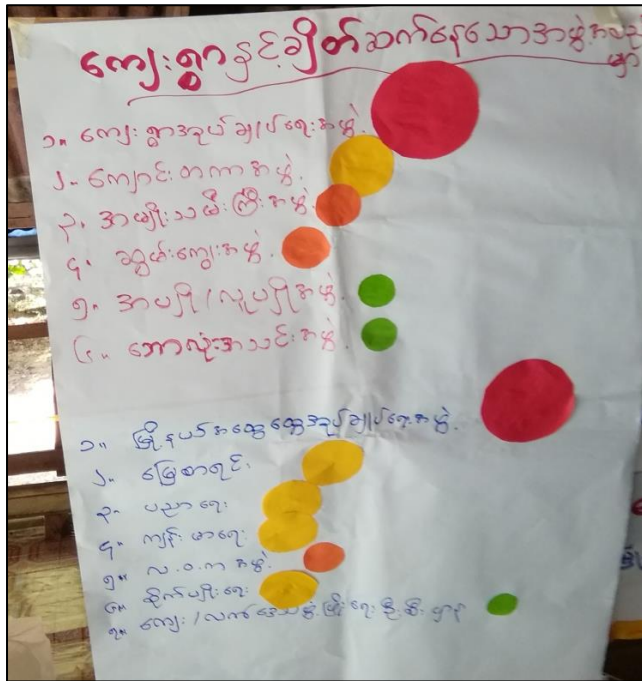 ကျေးရွာနှင့်ချိတ်ဆက်နေသောအဖွဲ့အစည်း
များ
၁။ ကျေးရွာအုပ်ချုပ်ရေးအဖွဲ့.
၂။ ကျောင်းတကာအဖွဲ့.
၃။ အမျိုးသမီးကြီးအဖွဲ့.
၄။ ဆွမ်းကျွေးအဖွဲ့.
၅။ အပျို/လူပျိုအဖွဲ့.
၆။ ဘောလုံးအသင်းအဖွဲ့.
၁။ မြို့နယ်အထွေထွေအုပ်ချုပ်ရေးအဖွဲ့.
၂။ မြေစာရင်း
၃။ ပညာရေး
၄။ ကျန်းမာရေး
၅။ လ.ဝ.က အဖွဲ့.
၆။ စိုက်ပျိုးရေး
၇။ ကျေး/လက်ဒေသဖွံ့ဖြိုးရေးဦးစီးဌာန